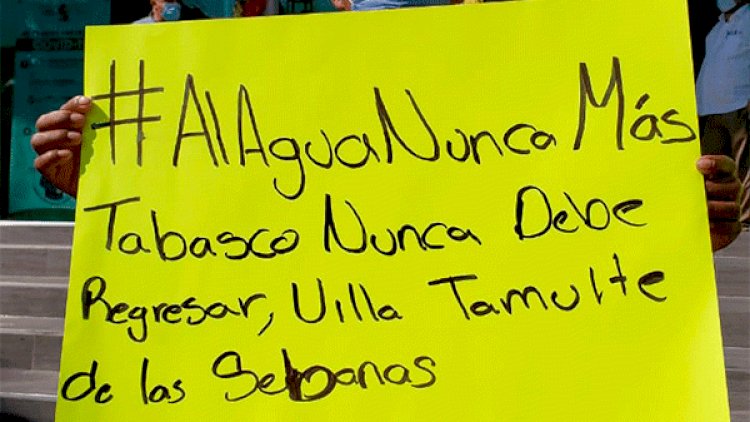 #AlAguaNuncaMás
Tabasco Nunca Debe
Regresar, Villa Tamulte
de las Sabanas